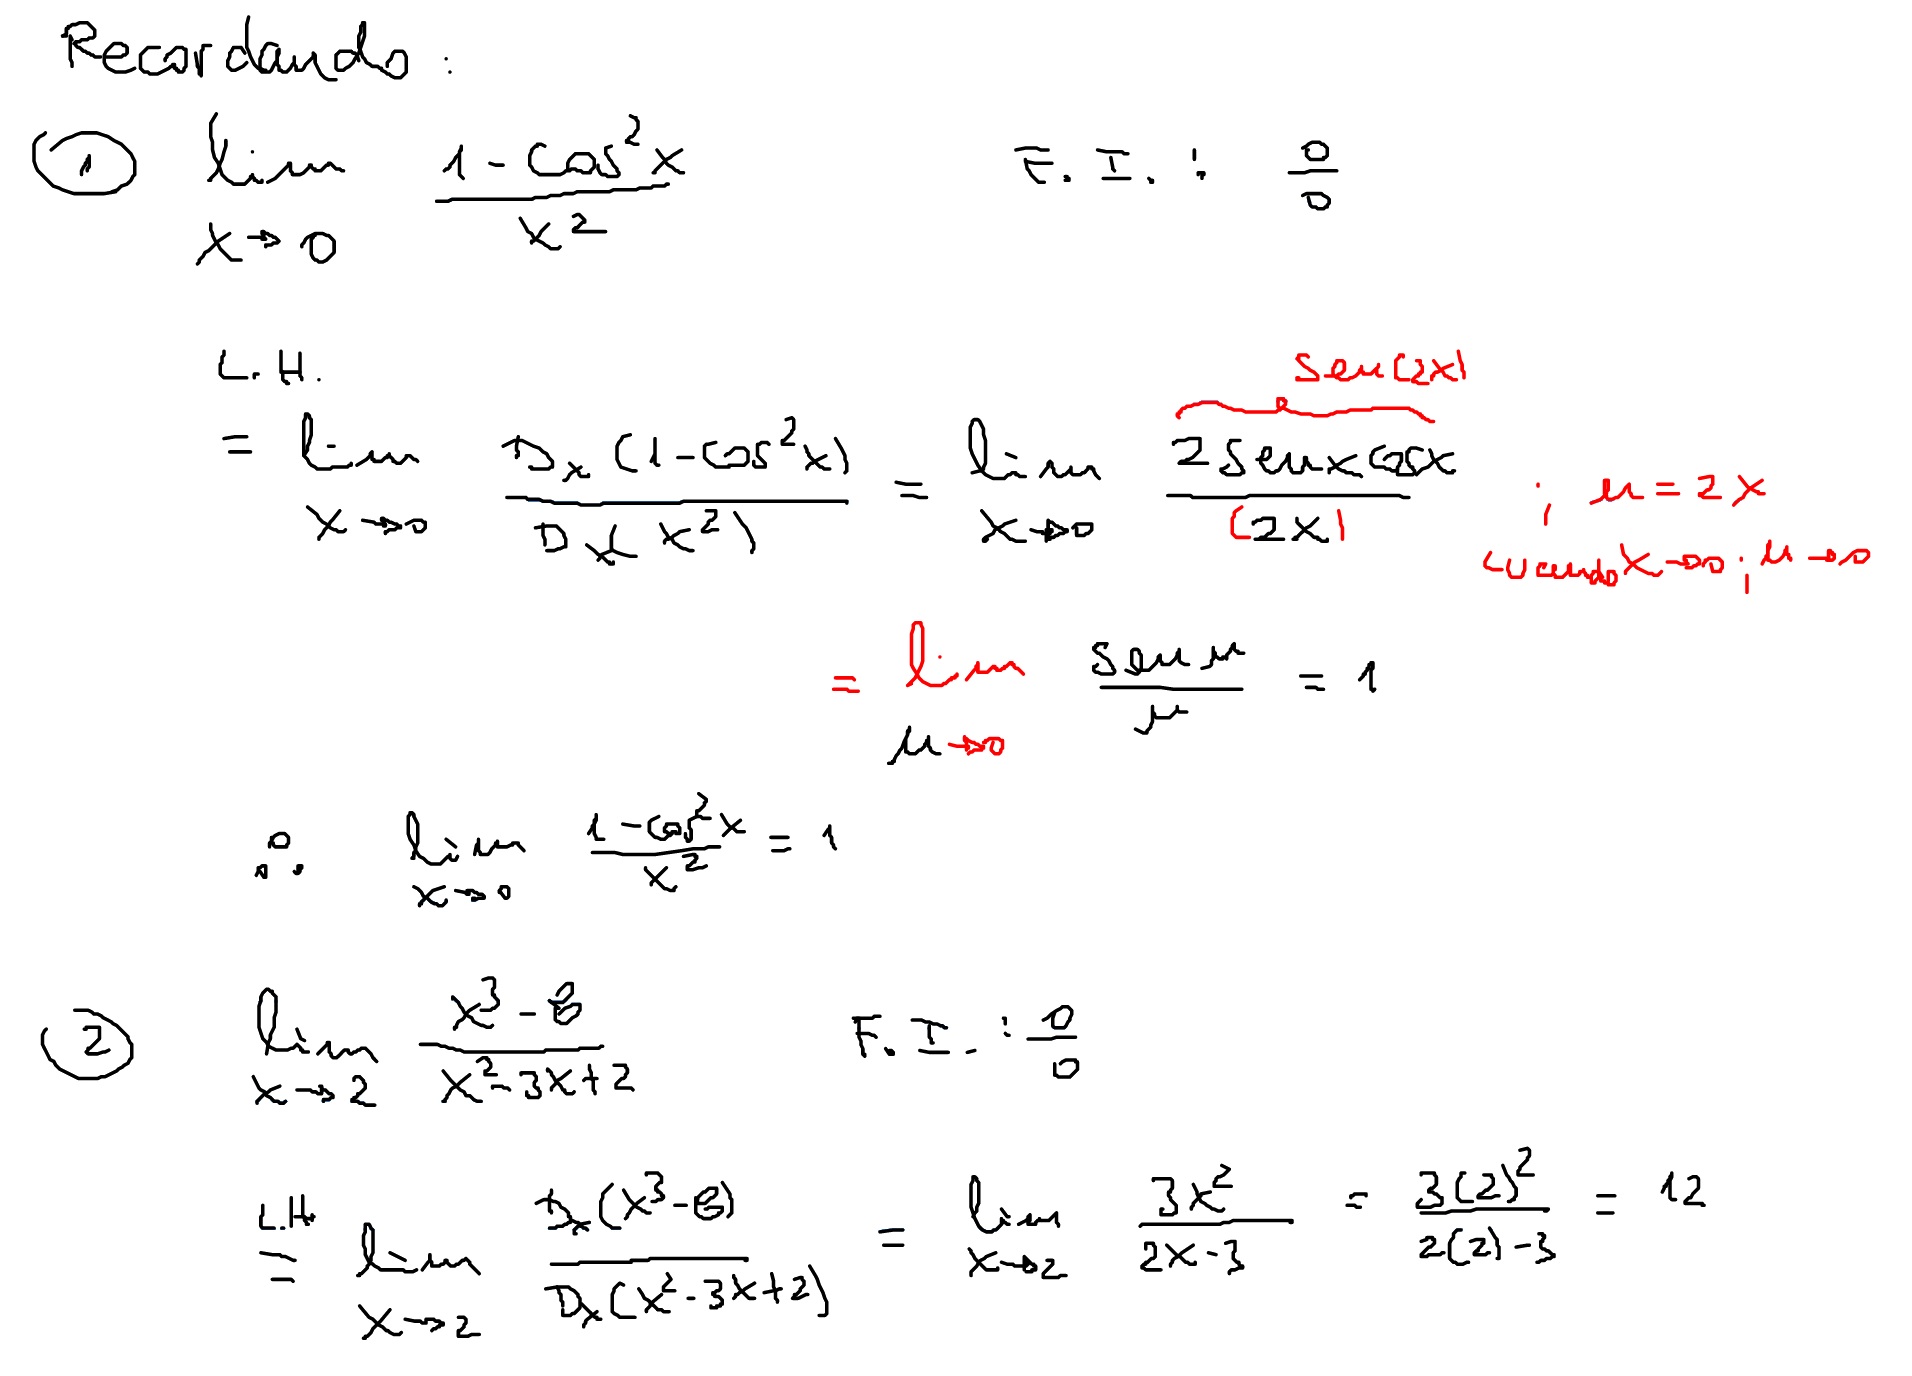 Recordando:
① lim x→0 (1 - cos²x)/x² F. I. : 0/0
L.H.
= lim x→0 Dx(1 - cos²x)/Dx(x²) = lim x→0 2senxcosx/(2x) sen(2x) ; u = 2x
cuando x→0 ; u→0
= lim u→0 sen u/u = 1
∴ lim x→0 (1 - cos²x)/x² = 1
② lim x→2 (x³ - 8)/(x² - 3x + 2) F. I. : 0/0
L.H.
= lim x→2 Dx(x³ - 8)/Dx(x² - 3x + 2) = lim x→2 3x²/(2x - 3) = 3(2)²/(2(2) - 3) = 12